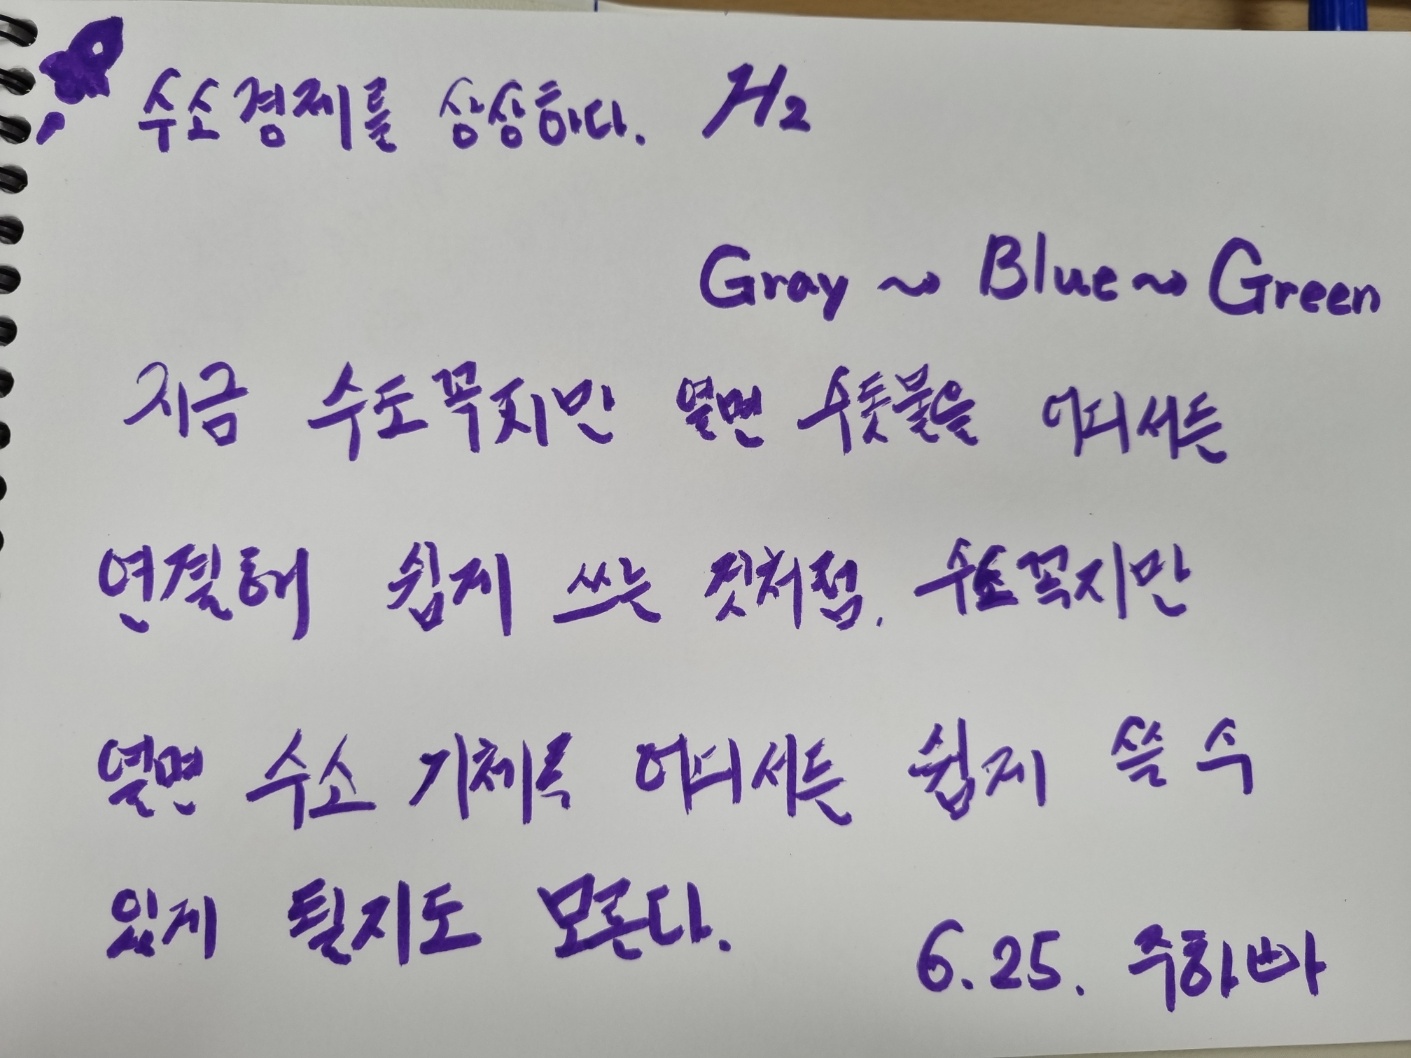 수소경제를 상상하다. H2
Gray → Blue → Green
지금 수도꼭지만 열면 수돗물을 어디서든
연결해 쉽게 쓰는 것처럼. 수도꼭지만
열면 수소 기체로 어디서든 쉽게 쓸 수
있게 될지도 모른다.
6.25. 주하빠